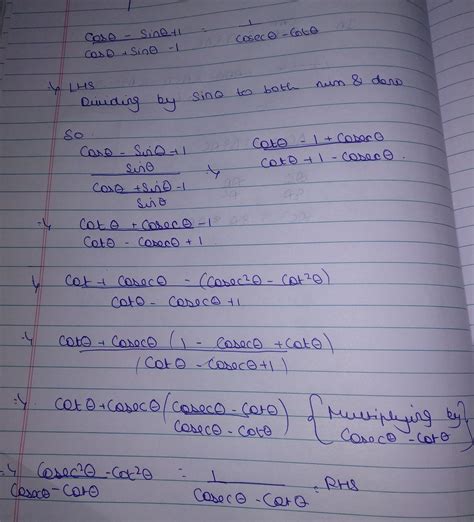 Cosθ - Sinθ+1 / Cosθ + Sinθ -1 = 1 / Cosecθ - Cotθ
LHS
Dividing by Sinθ to both num & deno
So
Cosθ - Sinθ+1 / Sinθ / Cosθ + Sinθ -1 / Sinθ ⇒ Cotθ - 1 + Cosecθ / Cotθ + 1 - Cosecθ.
⇒ Cotθ + Cosecθ - 1 / Cotθ - Cosecθ + 1
⇒ Cot + Cosecθ - (Cosec²θ - Cot²θ) / Cotθ - Cosecθ +1
⇒ Cotθ + Cosecθ (1 - Cosecθ + Cotθ) / (Cotθ - Cosecθ+1)
⇒ Cotθ + Cosecθ (Cosecθ - Cotθ / Cosecθ - Cotθ) {Multiplying by Cosecθ - Cotθ}
⇒ Cosec²θ - Cot²θ / Cosecθ - Cotθ = 1 / Cosecθ - Cotθ = RHS